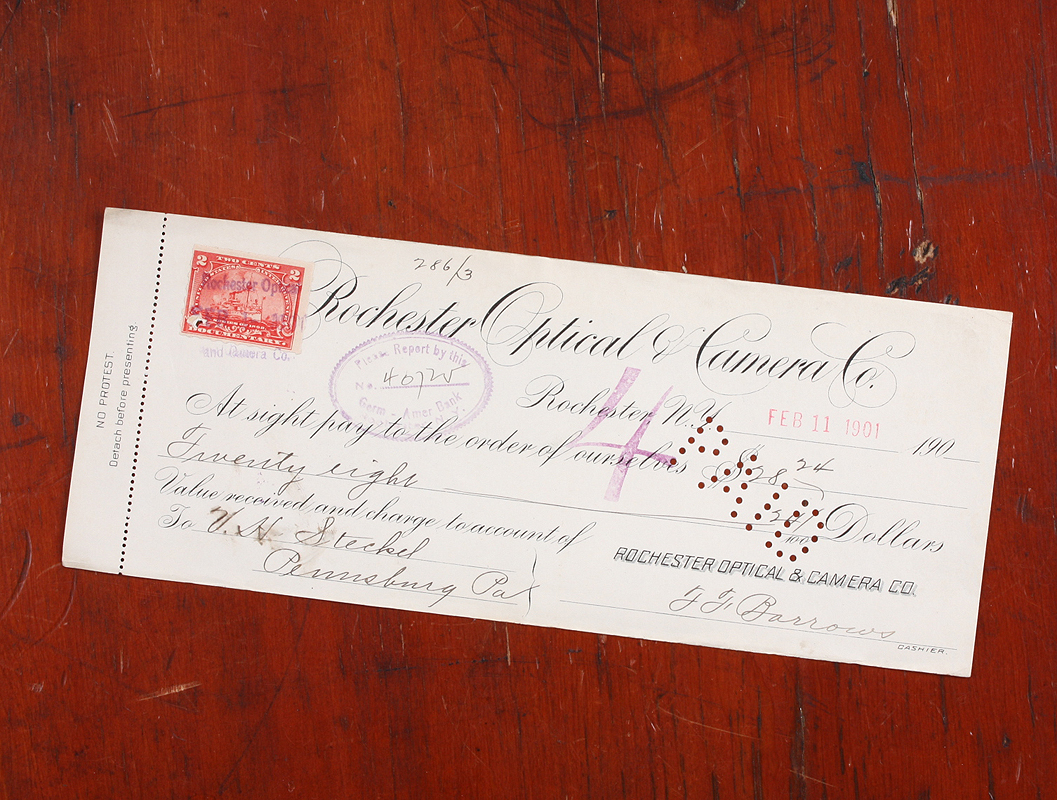 NO PROTEST.
Detach before presenting
TWO CENTS
2 2
UNITED STATES
DOCUMENTARY.
Rochester Optical
and Camera Co.
286/3
Rochester Optical & Camera Co.
Please Report by this
No. 40725
Germ - Amer Bank
4
Rochester N.Y. FEB 11 1901 190
At sight pay to the order of ourselves $28 24
Twenty eight 24/100 Dollars
Value received and charge to account of
To V. H. Steckel
Pennsburg Pa
ROCHESTER OPTICAL & CAMERA CO.
F. F. Barrows
CASHIER.
PAID